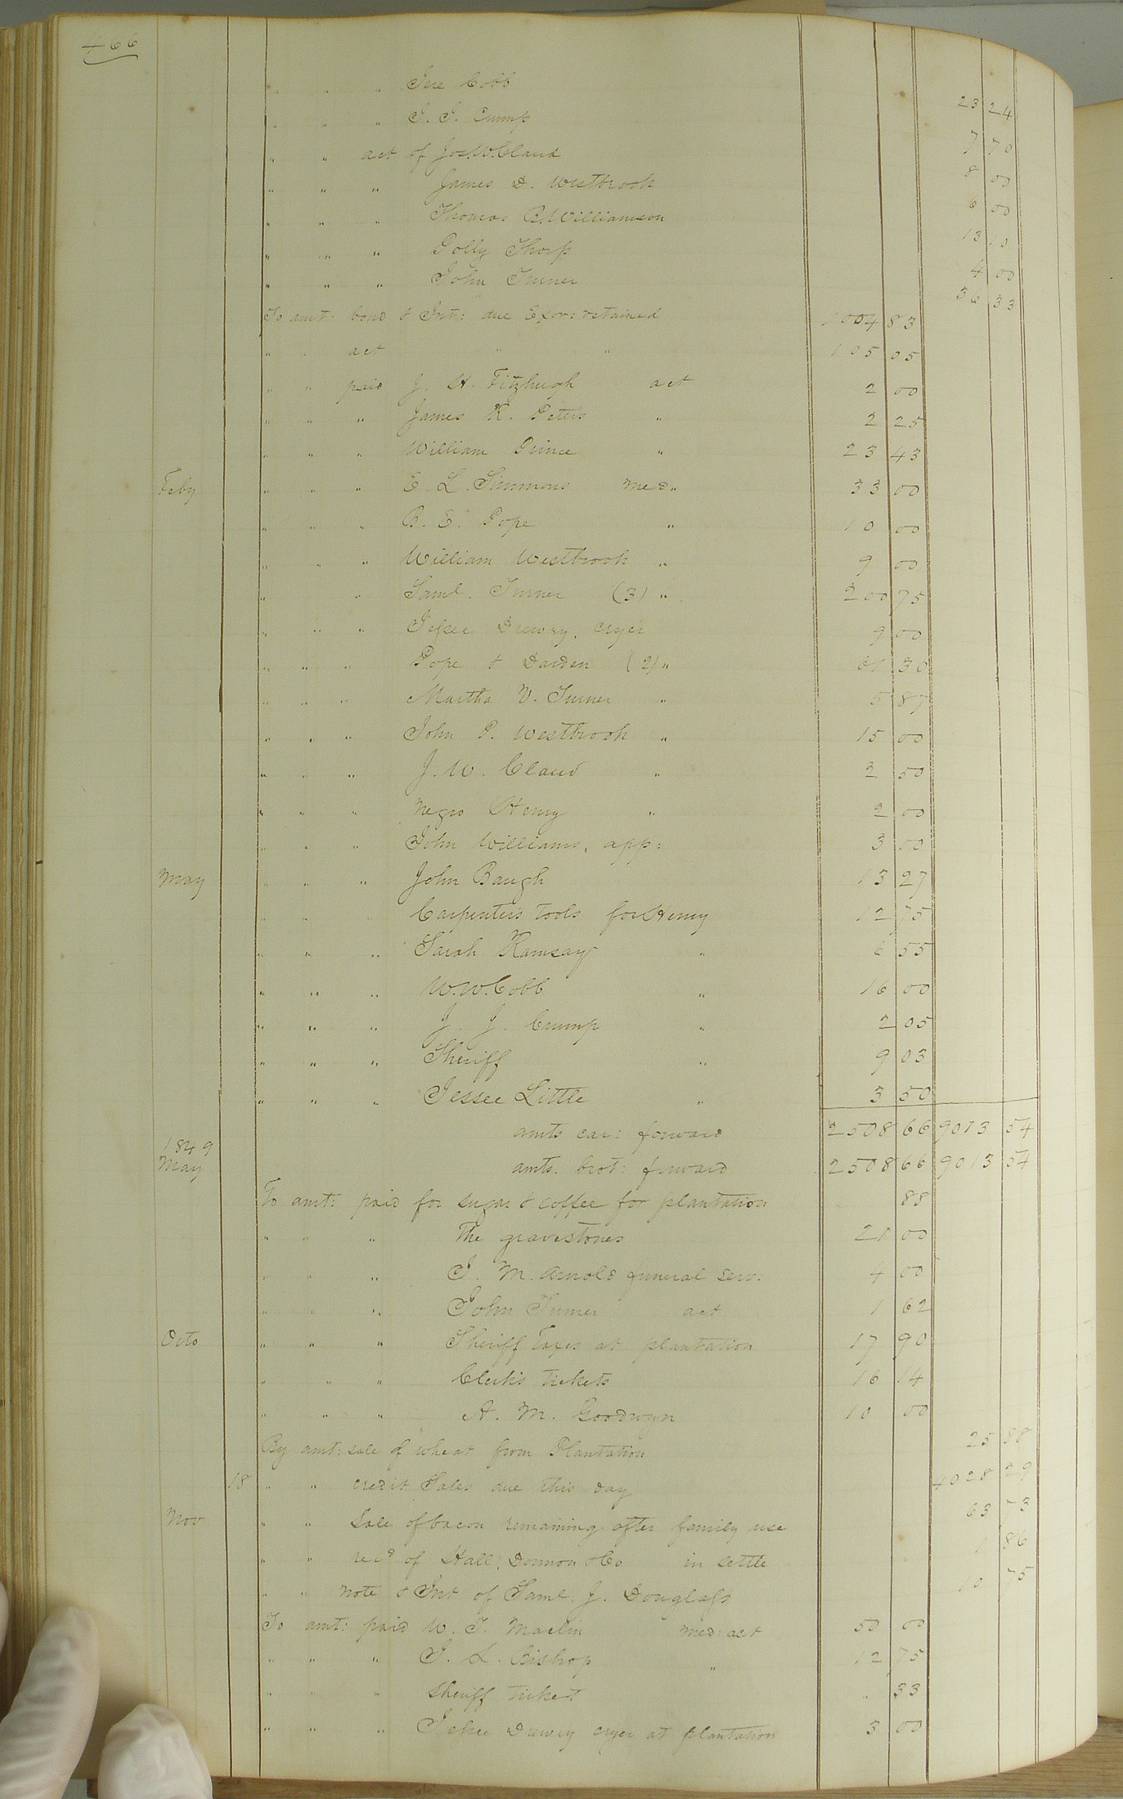 466
" " " Jere Cobb 23 24
" " " J. J. Crump 7 70
" " act of Jos. W. Claud 8 00
" " " James D. Westbrook 6 00
" " " Thomas B. Williamson 13 10
" " " Polly Thorp 4 00
" " " John Turner 36 33
To amt: bond & Int: due Exor: retained 1004 83
" " act " " 105 05
" " paid J. H. Fitzhugh act 2 00
" " " James K. Peters " 2 25
" " " William Prince " 23 43
Feby " " " E. L. Simmons med " 33 00
" " " B. E. Pope " 10 00
" " " William Westbrook " 9 00
" " Saml. Turner (3) " 200 75
" " " Jessee Drewry, cryer 9 00
" " " Pope & Darden (2) " 30
" " " Martha W. Turner " 5 87
" " " John P. Westbrook " 15 00
" " " J. W. Claud " 2 50
" " " Negro Henry " 2 00
" " " John Williams, app: 3 00
May " " " John Baugh 13 27
" " Carpenters tools for Henry 12 75
" " " Sarah Ramsay " 6 55
" " " W. W. Cobb " 16 00
" " " J. J. Crump " 2 05
" " " Sheriff " 9 03
" " " Jessee Little " 3 50
amts car: forward 2508 66 9013 54
1849
May amts. brot: forward 2508 66 9013 54
To amt: paid for sugar & coffee for plantation 88
" " " The gravestones 21 00
" " " J. M. Arnold funeral serv: 4 00
" " " John Turner act 1 62
Octo " " " Sheriff Taxes at plantation 17 90
" " " Clerk's tickets 16 14
" " " A. M. Goodwyn 10 00
By amt: sale of wheat from Plantation 25 88
18 " " credit Sales due this day 4028 29
Nov " " Sale of bacon remaining after family use 63 73
" " rec'd of Hall, Donnon & Co in settle 1 86
" " note & Int of Saml. J. Douglass 10 75
To amt: paid W. T. Maclin med: act 50 00
" " " J. L. Bishop " 12 75
" " " Sheriff ticket " 33
" " " Jessee Drewry cryer at plantation 3 00